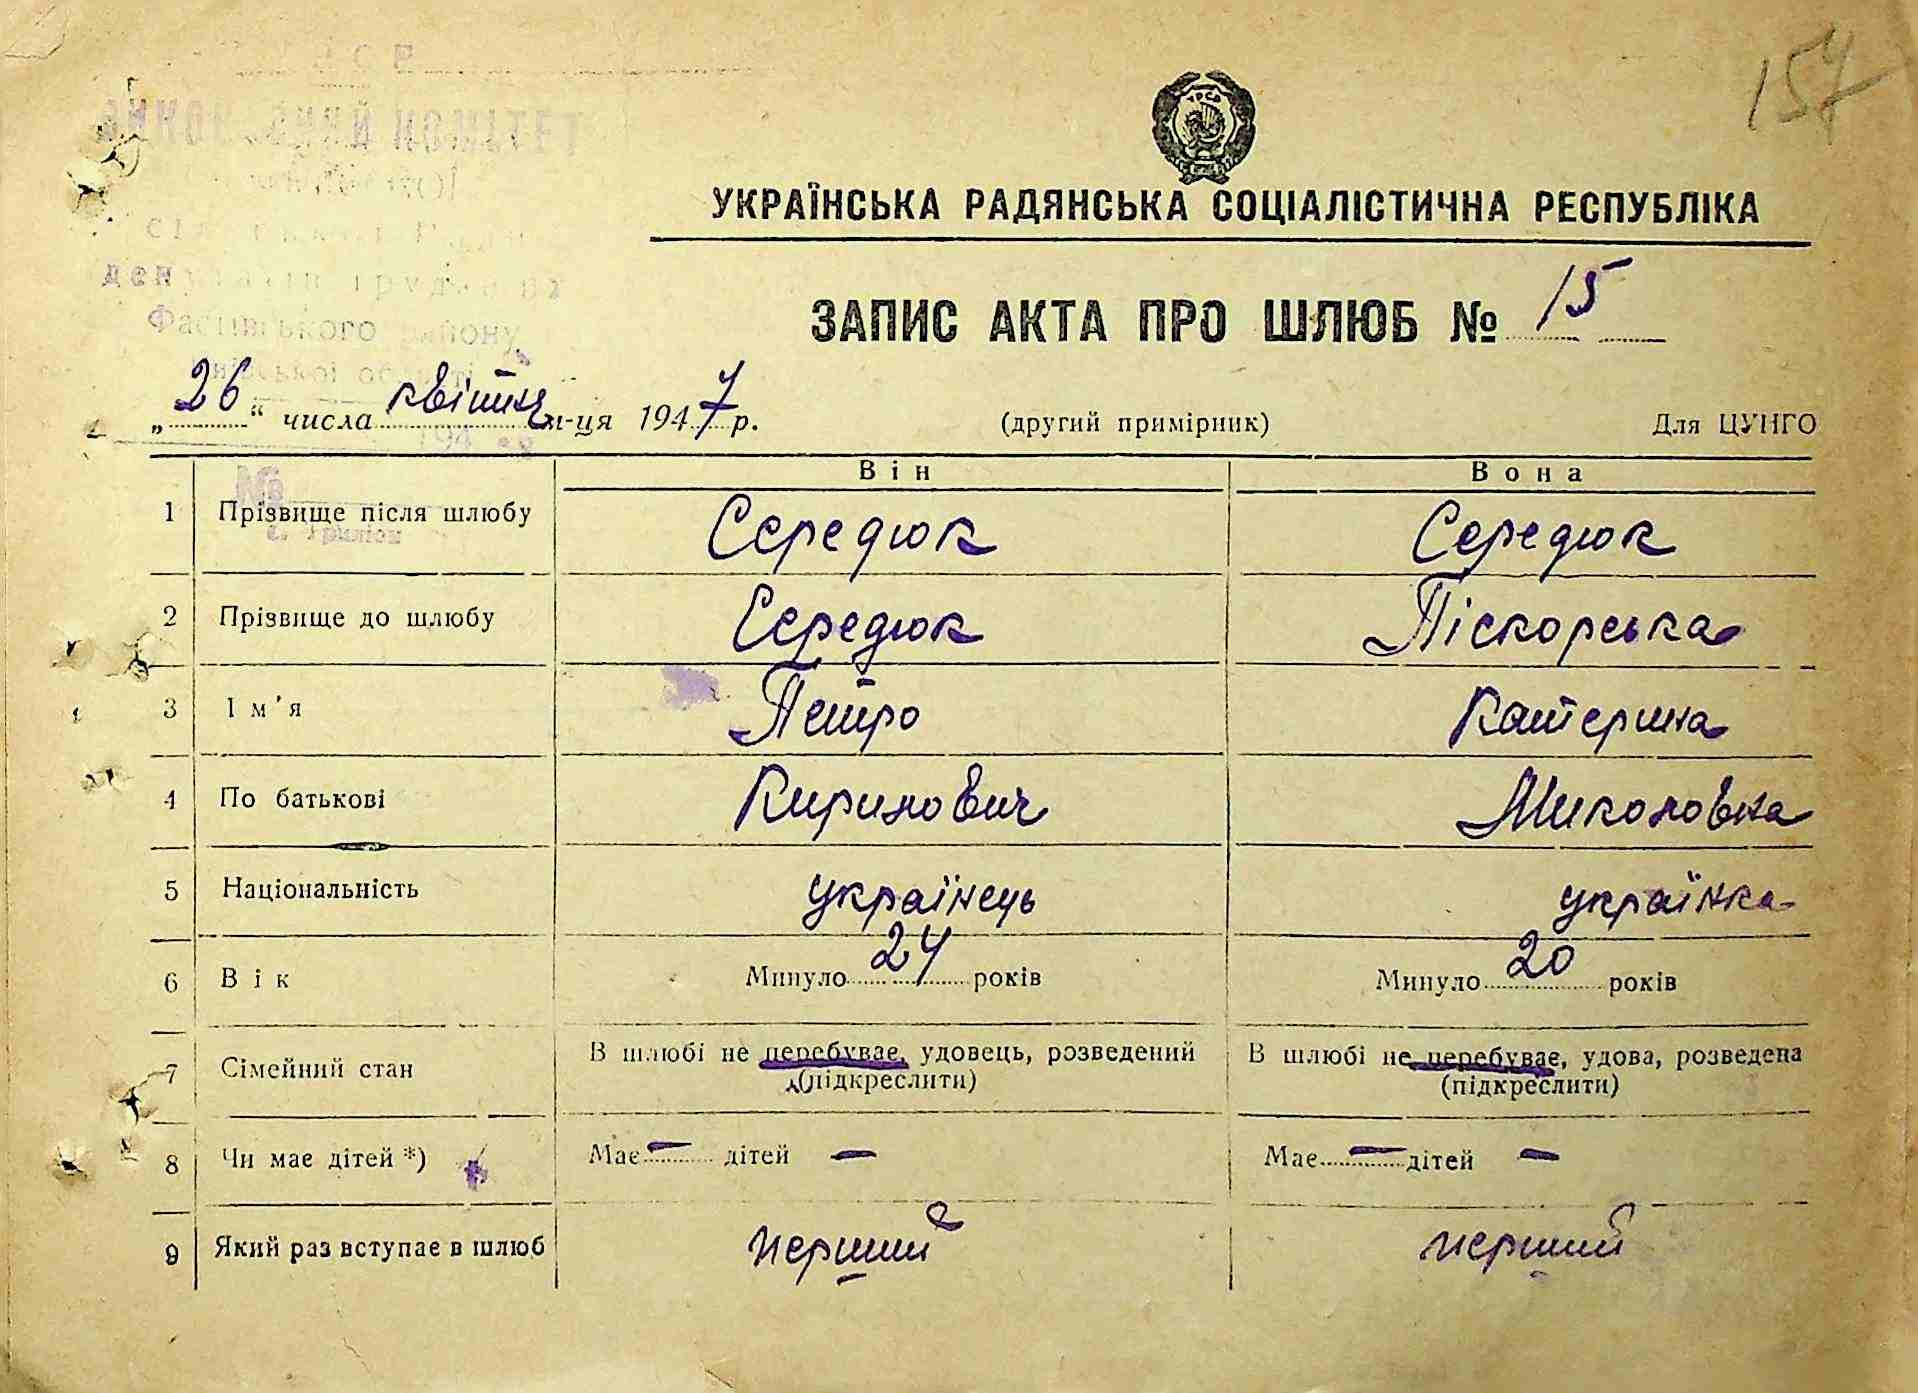 157
УКРАЇНСЬКА РАДЯНСЬКА СОЦІАЛІСТИЧНА РЕСПУБЛІКА
КОМІТЕТ
Фастівського району
ЗАПИС АКТА ПРО ШЛЮБ № 15
„26“ числа квітня м-ця 1947 р. (другий примірник) Для ЦУНГО
Він Вона
№
1 Прізвище після шлюбу Середюк Середюк
2 Прізвище до шлюбу Середюк Піскорська
3 Ім'я Петро Катерина
4 По батькові Кирилович Миколовна
5 Національність українець українка
6 Вік Минуло 24 років Минуло 20 років
7 Сімейний стан В шлюбі не перебуває, удовець, розведений В шлюбі не перебуває, удова, розведена
(підкреслити) (підкреслити)
8 Чи має дітей *) Має — дітей — Має — дітей —
9 Який раз вступає в шлюб перший перший